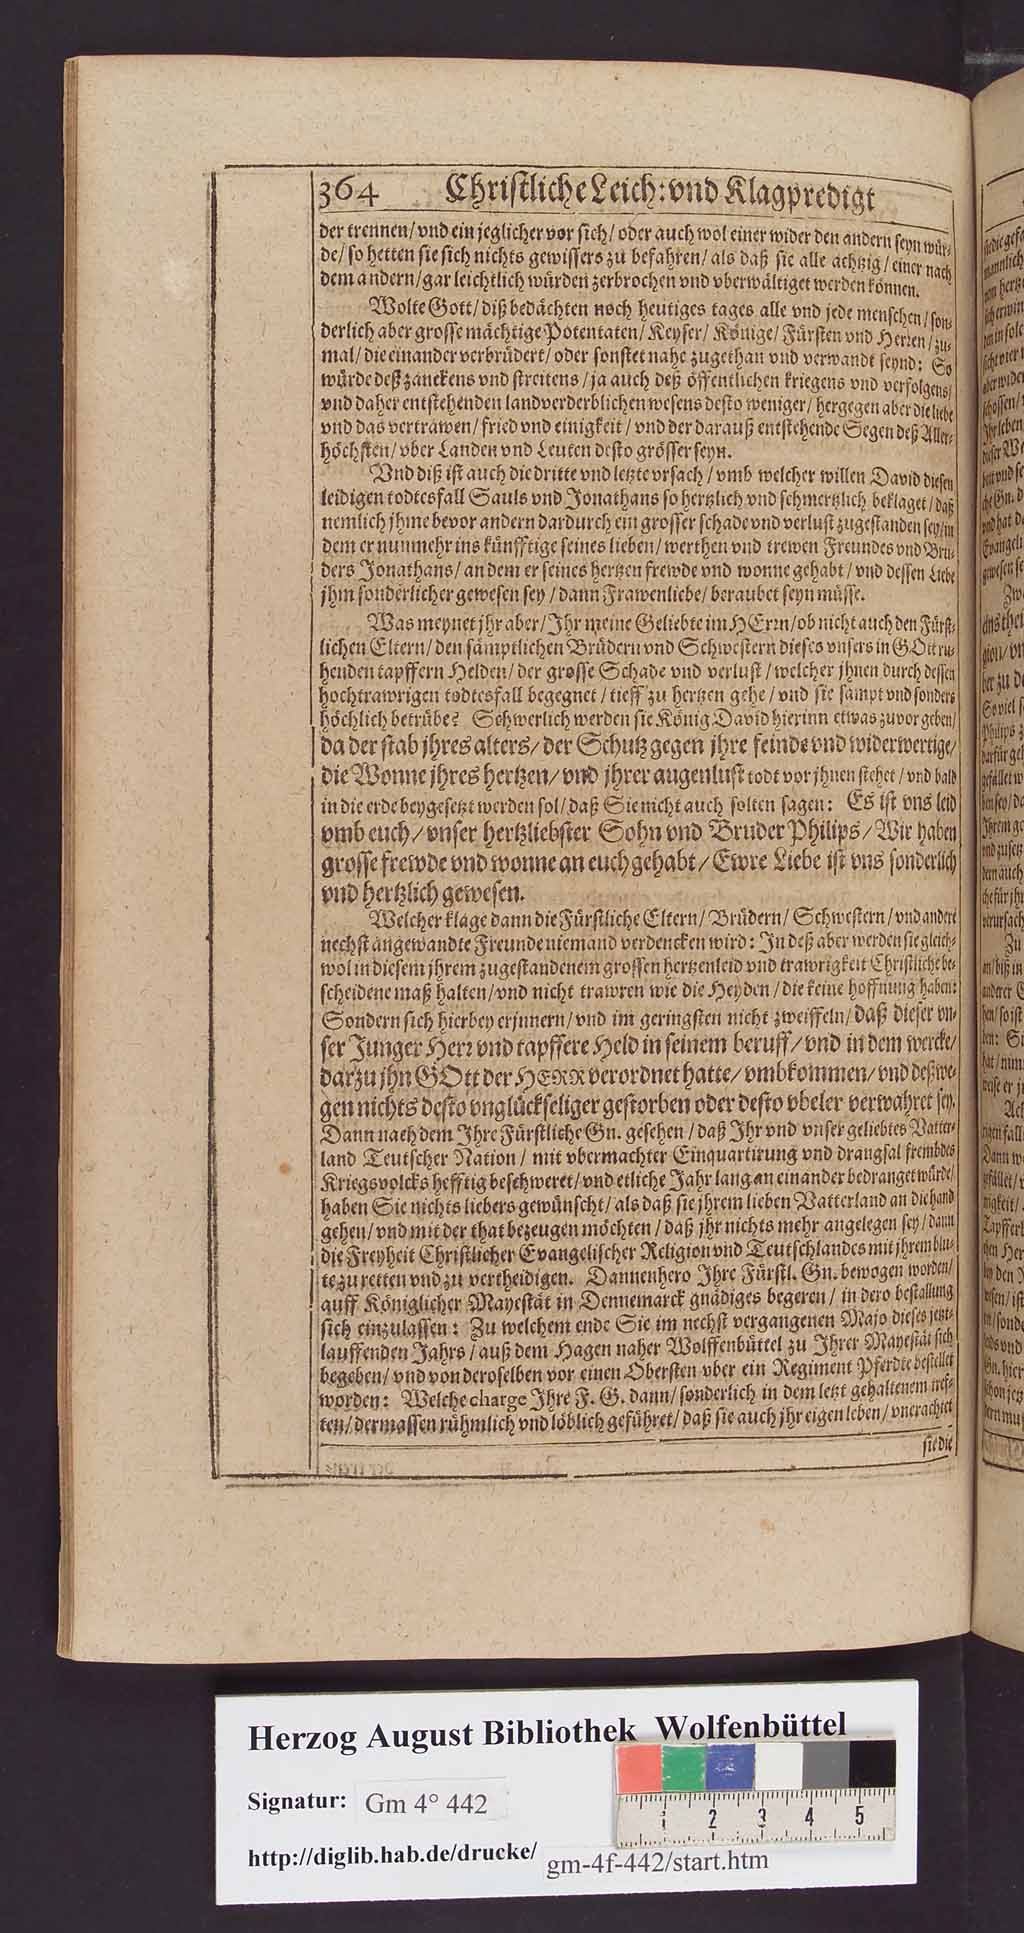 364 Christliche Leich: vnd Klagpredigt
der trennen/ vnd ein jeglicher vor sich/ oder auch wol einer wider den andern seyn wür-
de/ so hetten sie sich nichts gewissers zu befahren/ als daß sie alle achtzig/ einer nach
dem andern/ gar leichtlich würden zerbrochen vnd vberwältiget werden können.
Wolte Gott/ diß bedächten noch heutiges tages alle vnd jede menschen/ son-
derlich aber grosse mächtige Potentaten/ Keyser/ Könige/ Fürsten vnd Herren/ zu-
mal/ die einander verbrüdert/ oder sonstet nahe zugethan vnd verwandt seynd: So
würde deß zanckens vnd streitens/ ja auch deß öffentlichen kriegens vnd verfolgens/
vnd daher entstehenden landverderblichen wesens desto weniger/ hergegen aber die liebe
vnd das vertrawen/ fried vnd einigkeit/ vnd der darauß entstehende Segen deß Aller-
höchsten/ vber Landen vnd Leuten desto grösser seyn.
Vnd diß ist auch die dritte vnd letzte vrsach/ vmb welcher willen David diesen
leidigen todtesfall Sauls vnd Jonathans so hertzlich vnd schmertzlich beklaget/ daß
nemlich jhme bevor andern dardurch ein grosser schade vnd verlust zugestanden sey/ in
dem er nunmehr ins künfftige seines lieben/ werthen vnd trewen Freundes vnd Bru-
ders Jonathans/ an dem er seines hertzen frewde vnd wonne gehabt/ vnd dessen Liebe
jhm sonderlicher gewesen sey/ dann Frawenliebe/ beraubet seyn müsse.
Was meynet jhr aber/ Jhr meine Geliebte im HErrn/ ob nicht auch den Fürst-
lichen Eltern/ den sämptlichen Brüdern vnd Schwestern dieses vnsers in GOtt ru-
henden tapffern Helden/ der grosse Schade vnd verlust/ welcher jhnen durch dessen
hochtrawrigen todtesfall begegnet/ tieff zu hertzen gehe/ vnd sie sampt vnd sonders
höchlich betrübe? Schwerlich werden sie König David hierinn etwas zuvor geben/
da der stab jhres alters/ der Schutz gegen jhre feinde vnd widerwertige/
die Wonne jhres hertzen/ vnd jhrer augenlust todt vor jhnen stehet/ vnd bald
in die erde beygesetzt werden sol/ daß Sie nicht auch solten sagen: Es ist vns leid
vmb euch/ vnser hertzliebster Sohn vnd Bruder Philips/ Wir haben
grosse frewde vnd wonne an euch gehabt/ Ewre Liebe ist vns sonderlich
vnd hertzlich gewesen.
Welcher klage dann die Fürstliche Eltern/ Brüdern/ Schwestern/ vnd andere
nechst angewandte Freunde niemand verdencken wird: In deß aber werden sie gleich-
wol in diesem jhrem zugestandenem grossen hertzenleid vnd trawrigkeit Christliche be-
scheidene maß halten/ vnd nicht trawren wie die Heyden/ die keine hoffnung haben:
Sondern sich hierbey erjnnern/ vnd im geringsten nicht zweiffeln/ daß dieser vn-
ser Junger Herr vnd tapffere Held in seinem beruff/ vnd in dem wercke/
darzu jhn GOtt der HERR verordnet hatte/ vmbkommen/ vnd deßwe-
gen nichts desto vnglückseliger gestorben oder desto vbeler verwahret sey.
Dann nach dem Ihre Fürstliche Gn. gesehen/ daß Ihr vnd vnser geliebtes Vatter-
land Teutscher Nation/ mit vbermachter Einquartirung vnd drangsal frembdes
Kriegsvolcks hefftig beschweret/ vnd etliche Jahr lang an einander bedranget würde/
haben Sie nichts liebers gewünscht/ als daß sie jhrem lieben Vatterland an die hand
gehen/ vnd mit der that bezeugen möchten/ daß jhr nichts mehr angelegen sey/ dann
die Freyheit Christlicher Evangelischer Religion vnd Teutschlandes mit jhrem blu-
te zu retten vnd zu vertheidigen. Dannenhero Ihre Fürstl. Gn. bewogen worden/
auff Königlicher Mayestät in Dennemarck gnädiges begeren/ in dero bestallung
sich einzulassen: Zu welchem ende Sie im nechst vergangenen Majo dieses jetzt-
lauffenden Jahrs/ auß dem Hagen naher Wolffenbüttel zu Ihrer Mayestät sich
begeben/ vnd von deroselben vor einen Obersten vber ein Regiment Pferdte bestellet
worden: Welche charge Ihre F. G. dann/ sonderlich in dem letzt gehaltenem tref-
ten/ dermassen rühmlich vnd löblich geführet/ daß sie auch jhr eigen leben/ vnerachtet
sie die
Herzog August Bibliothek Wolfenbüttel
Signatur: Gm 4° 442
http://diglib.hab.de/drucke/ gm-4f-442/start.htm
1 2 3 4 5